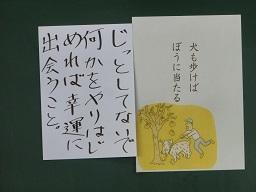 犬も歩けば
ぼうに当たる
じっとしてないで
何かをやりはじ
めれば幸運に
出会うこと。